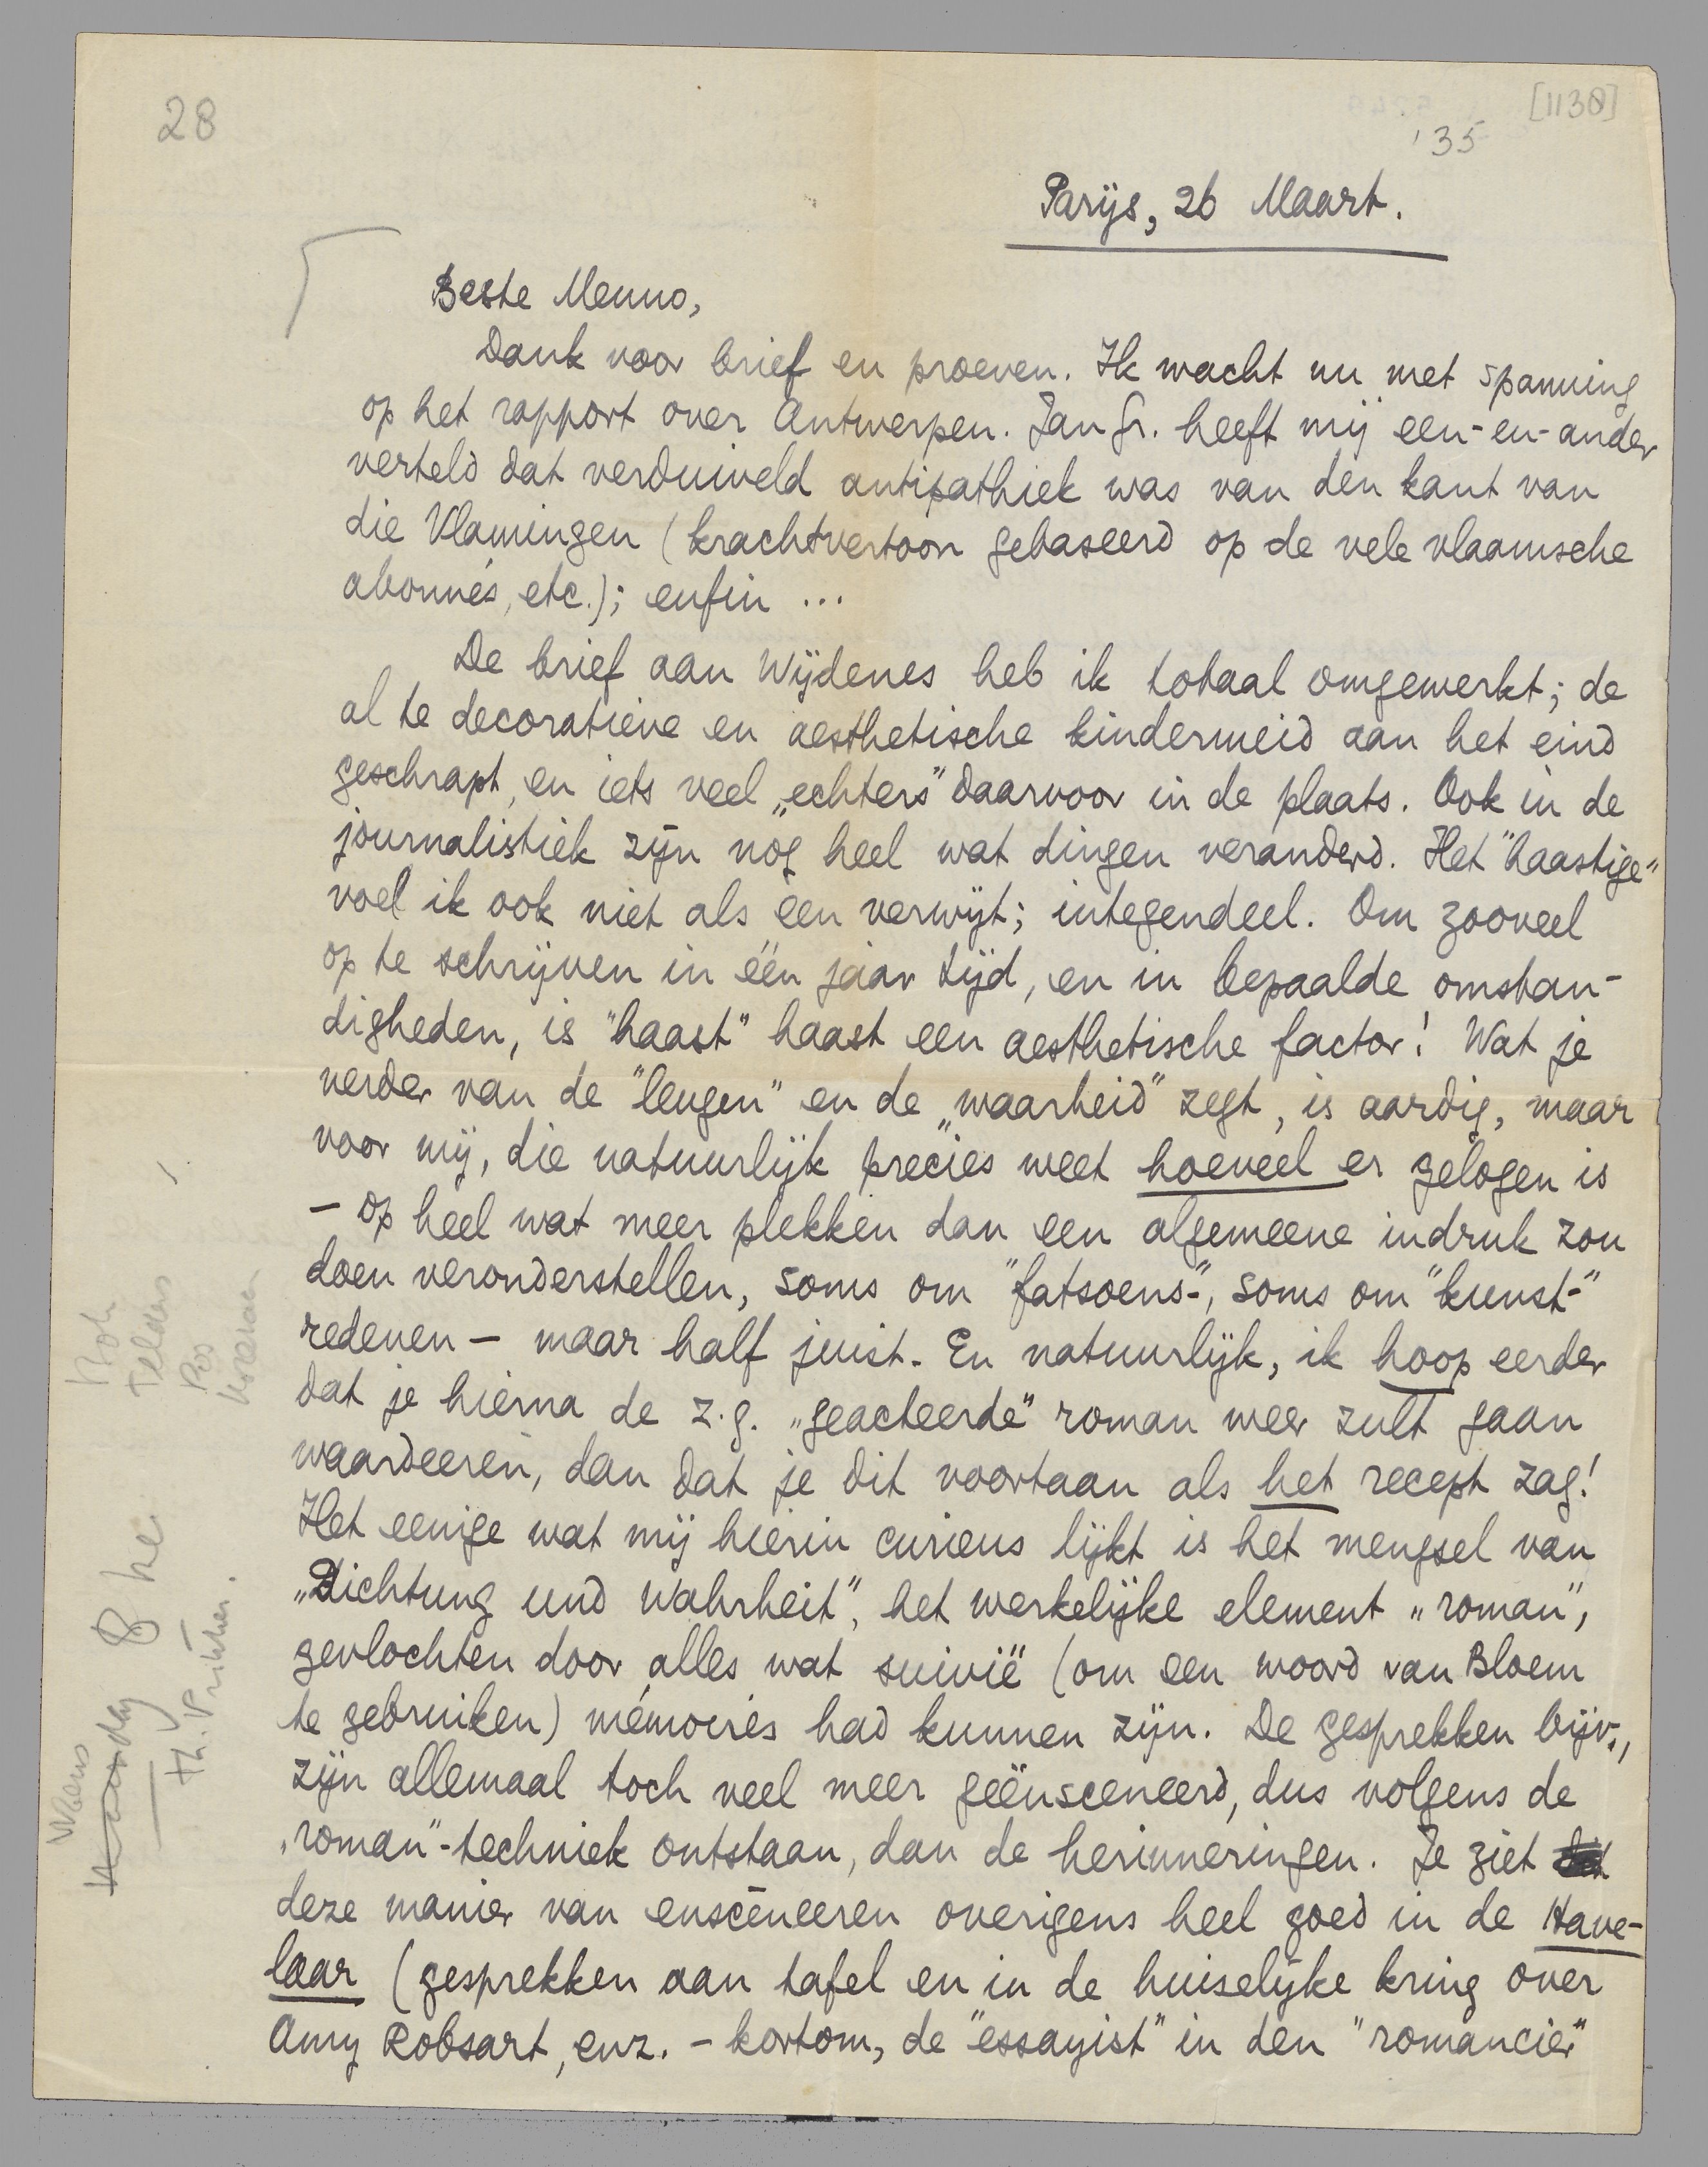 28
[1130]
'35
Parijs, 26 Maart.
Beste Menno,
Dank voor brief en proeven. Ik wacht nu met spanning
op het rapport over Antwerpen. Jan Gr. heeft mij een-en-ander
verteld dat verduiveld antipathiek was van den kant van
die Vlamingen (krachtvertoon gebaseerd op de vele vlaamsche
abonnés, etc.); enfin ...
De brief aan Wijdenes heb ik totaal omgewerkt; de
al te decoratieve en aesthetische kindermeid aan het eind
geschrapt, en iets veel „echters" daarvoor in de plaats. Ook in de
journalistiek zijn nog heel wat dingen veranderd. Het "haastige"
voel ik ook niet als een verwijt; integendeel. Om zooveel
op te schrijven in één jaar tijd, en in bepaalde omstan-
digheden, is "haast" haast een aesthetische factor! Wat je
verder van de "leugen" en de „waarheid" zegt, is aardig, maar
voor mij, die natuurlijk precies weet hoeveel er gelogen is
- op heel wat meer plekken dan een algemeene indruk zou
doen veronderstellen, soms om "fatsoens-", soms om "kunst-"
redenen - maar half juist. En natuurlijk, ik hoop eerder
dat je hierna de z.g. „geacteerde" roman weer zult gaan
waardeeren, dan dat je dit voortaan als het recept zag!
Het eenige wat mij hierin curieus lijkt is het mengsel van
„Dichtung und Wahrheit", het werkelijke element „roman",
gevlochten door alles wat suivië (om een woord van Bloem
te gebruiken) mémoires had kunnen zijn. De gesprekken bijv.,
zijn allemaal toch veel meer geënsceneerd, dus volgens de
„roman"-techniek ontstaan, dan de herinneringen. Je ziet
deze manier van ensceneeren overigens heel goed in de Have-
laar (gesprekken aan tafel en in de huiselijke kring over
Amy Robsart, enz. - kortom, de "essayist" in den "romancier"
Telders
Pos
8